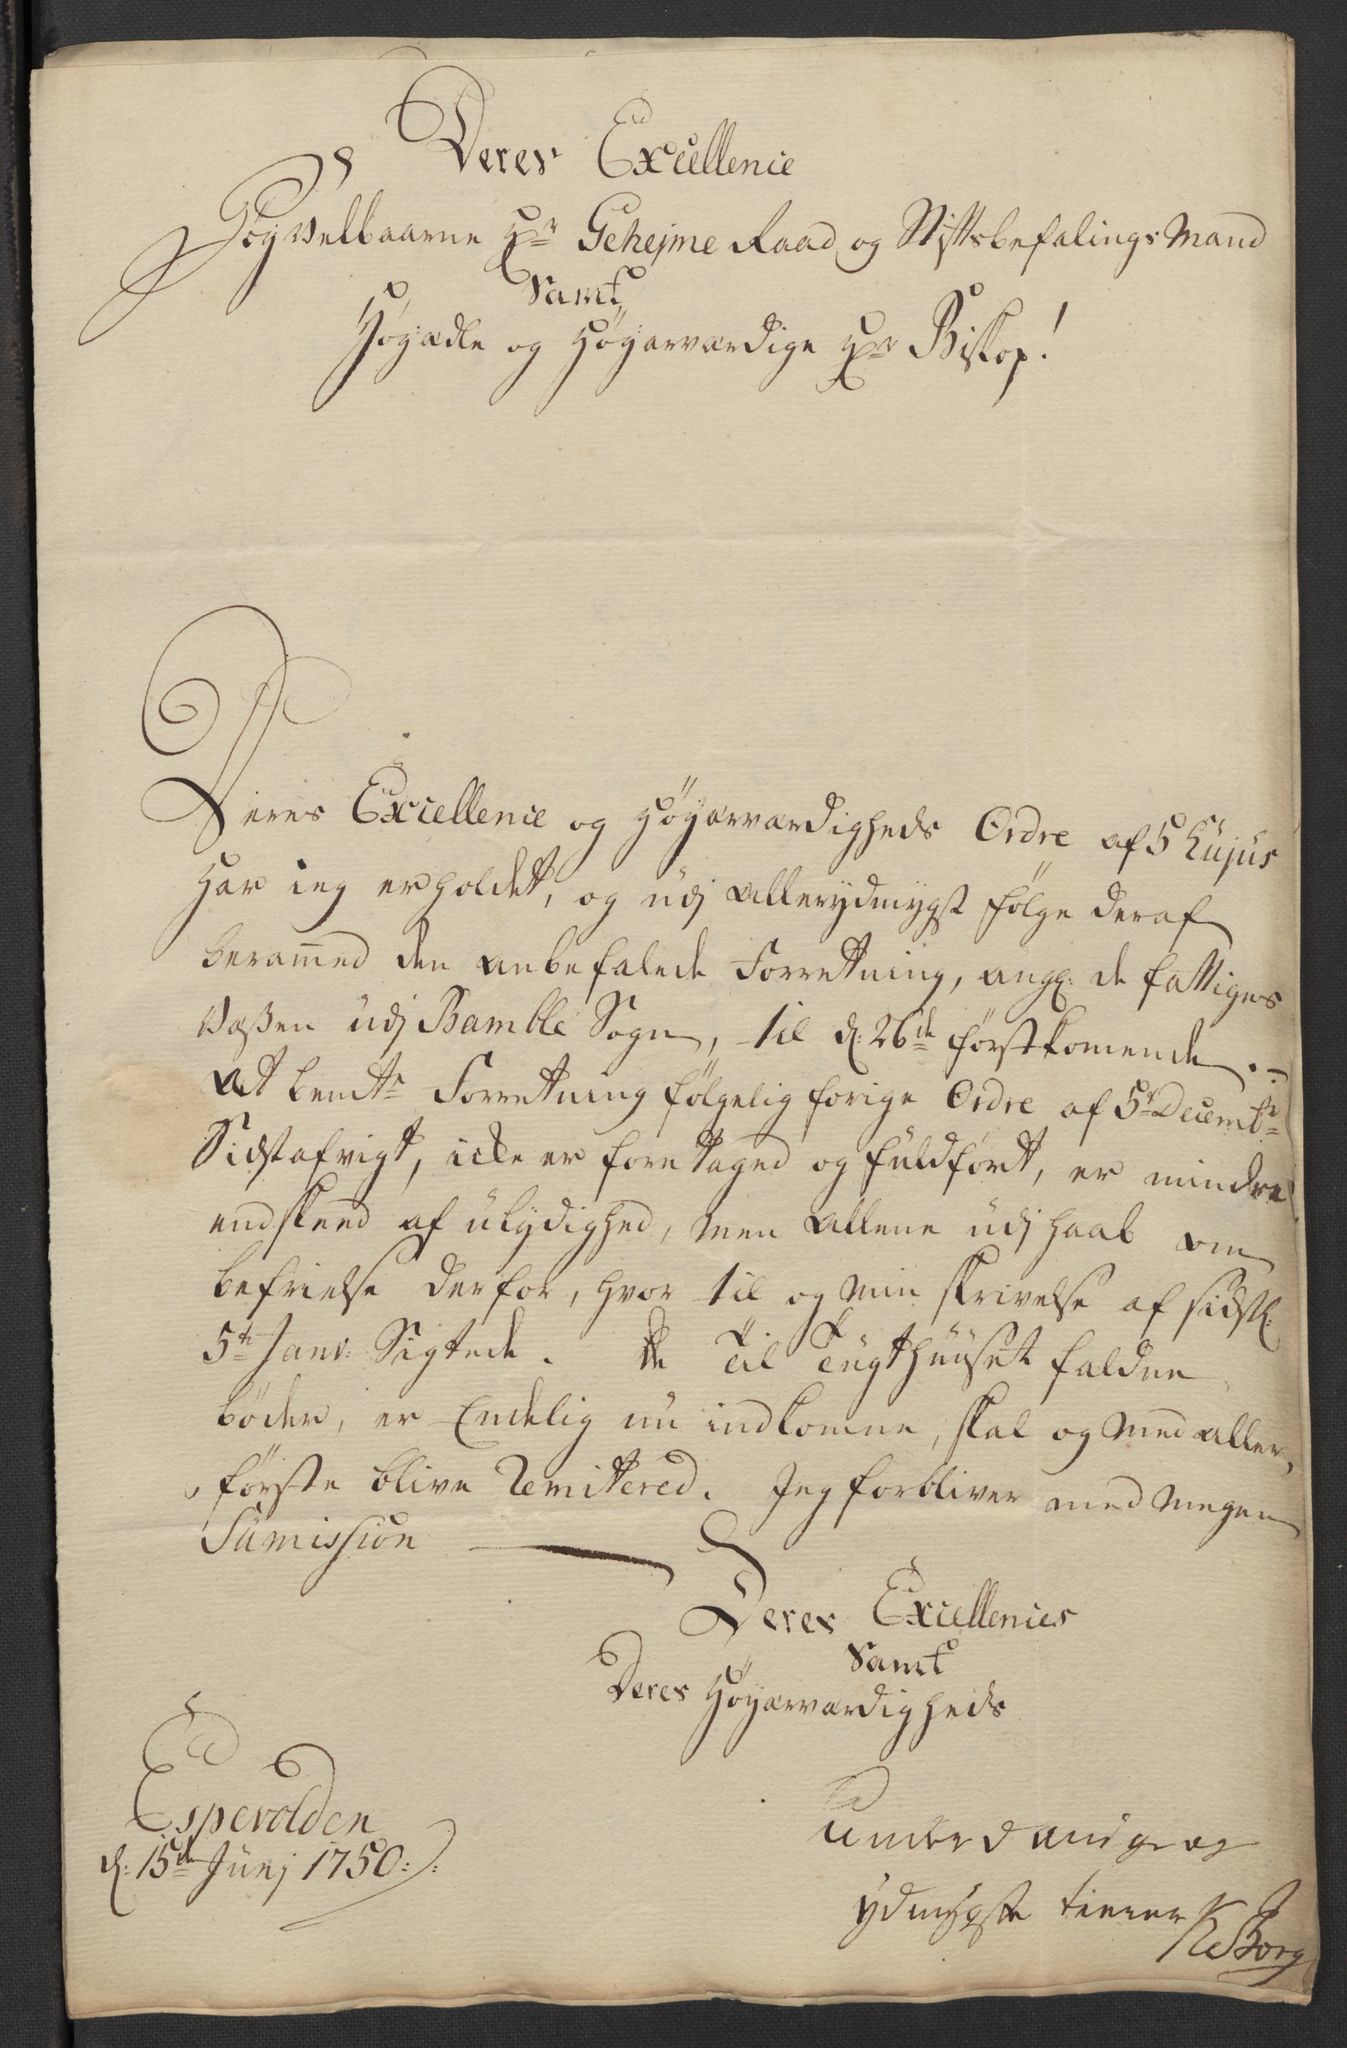 Deres Excellence
Høyvelbaarne Hr Gehejme Raad og Stiftsbefalings Mand
Samt
Høyædle og Høyærværdige Hr Biskop!
Deres Excellence og Høyærværdigheds Ordre af 5 hujus
har ieg erholdet, og udj allerydmygst følge deraf
beramed den anbefalede Forretning, angl: de fattiges
væßen udj Bamble Sogn, til d: 26de førstkomende.
At bemte Forretning følgelig forige Ordre af 5te Decembr
Sidstafvigt, icke er foretaged og fuldført, er mindre
endskeed af ulydighed, men allene udj haab om
befrielse derfor, hvor til og min skrivelse af sidstl:
5te Janv: Sigtede. de Til Tugthuuset faldne
bøder, er Endelig nu indkomne, skal og med aller,
første blive Remittered. Jeg forbliver med megen
Sumission
Deres Excellences
Samt
Deres Høyærværdigheds
Espevolden
d: 15de Junj 1750.
underdanige og
ydmygste tiener
Borg